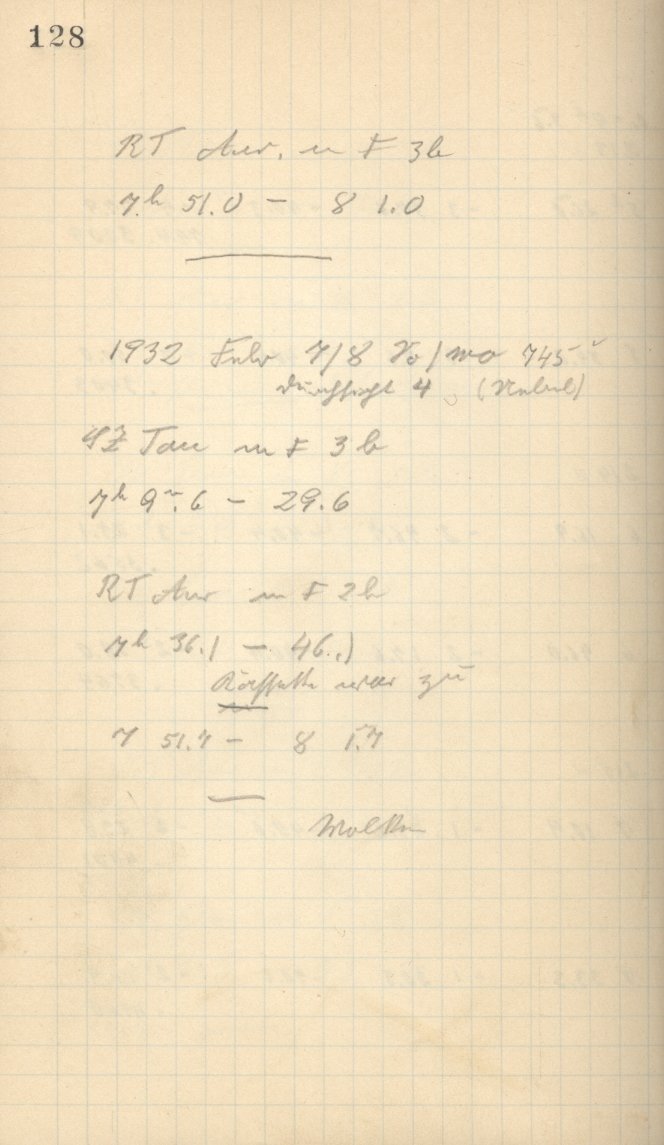 128
RT Aur. m F 3b
7h 51.0 – 8 1.0
1932 Febr 7/8 745
Durchsicht 4 (Nebel)
SZ Tau m F 3b
7h 9m.6 – 29.6
RT Aur m F 2b
7h 36.1 – 46.1
Kassette war zu
7 51.7 – 8 1.7
Wolken